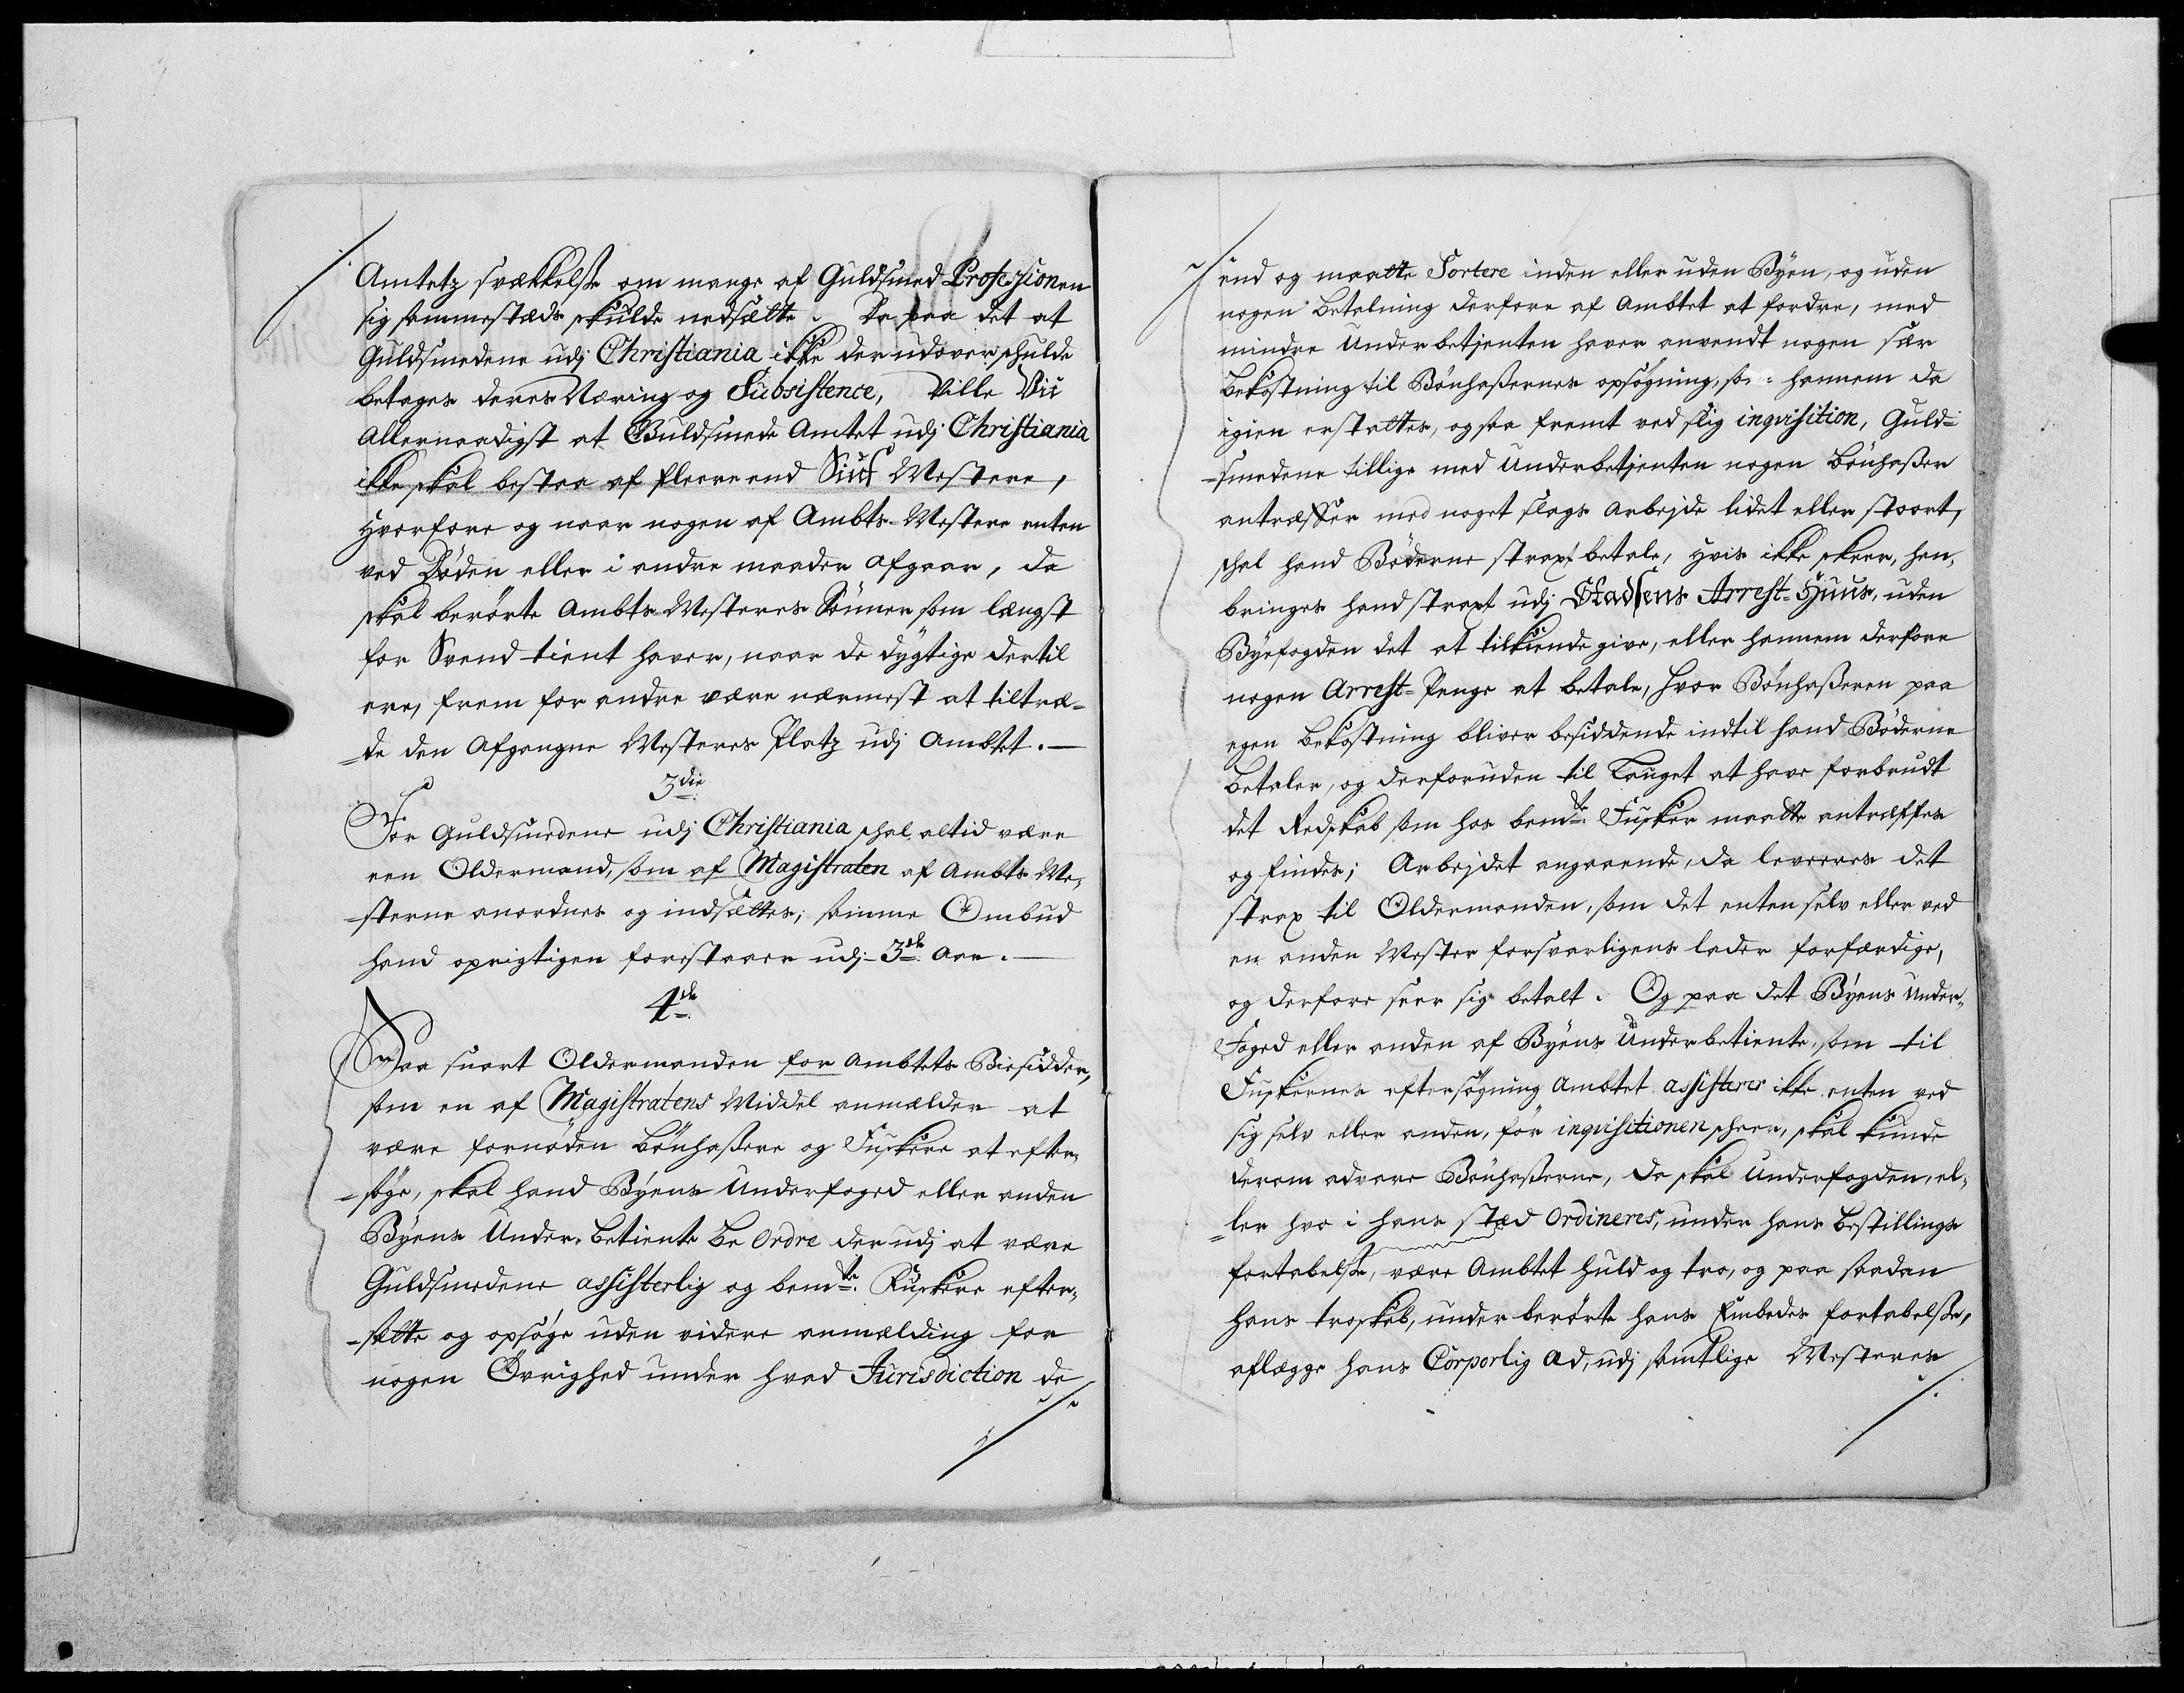 Amtetz svækkelse om mange af Guldsmed Professionen
sig sammestæds skulde nedsætte. Da paa det at
Guldsmedene udj Christiania ikke derudover schulde
betages deres Næring og Subsistence, Ville Vii
Allernaadigst at Guldsmede Amtet udj Christiania
ikke skal bestaa af fleere end Siuf Mestere,
Hvorfore og naar nogen af Ambts-Mestere enten
ved Døden eller i andre maader afgaar, da
skal berørte Ambts-Mesteres Sønner som længst
for Svend tient haver, naar de dygtige dertil
ere, frem for andre være nærmest at tiltræ-
-de den Afgangne Mesteres Platz udj Ambtet.—
3die
For Guldsmedene udj Christiania schal altid være
een Oldermand, som af Magistraten af Ambts Me-
-sterne anordnes og indsættes; samme Ombud
hand oprigtigen forestaaer udj 3de Aar.—
4de
Saa snart Oldermanden for Ambtets Biesidder,
som en af Magistratens Middel anmælder at
være fornøden Bønhasere og Fuskere at efter-
-søge, skal hand Byens Underfoged eller anden
Byens Under-betiente Be Ordre der udj at være
Guldsmedene assisterlig og bemte Fuskere efter-
-sætte og opsøge uden videre anmælding for
nogen Øvrighed under hvad Jurisdiction de
end og maatte Sortere inden eller uden Byen, og uden
nogen Betalning derfore af Ambtet at fordre, med
mindre Underbetjenten haver anvendt nogen sær
Bekostning til Bønhasernes opsøgning, som hannem da
igien erstattes, og saa fremt ved slig inqvisition, Guld-
-smedene tillige med Underbetjenten nogen Bønhaser
antræffer med noget slags Arbejde lidet eller stoort,
schal hand Bøderne straxt betale, Hvis ikke skeer, hen-
bringes hand straxt udj Stadsens Arrest-Huus, uden
Byefogden det at tilkiende give, eller hannem derfore
nogen Arrest-Penge at betale, hvor Bønhaseren paa
egen Bekostning bliver besiddende indtil hand Bøderne
betaler, og derforuden til Lauget at have forbrudt
det Redskab som hos bemte Fusker maatte antræffes
og findes; Arbejdet angaaende, da leveres det
strax til Oldermanden, som det enten selv eller ved
en anden Mester forsvarligens lader forfærdige,
og derfore seer sig betalt. Og paa det Byens Under-
Foged eller anden af Byens Underbetiente, som til
Fuskernes eftersøgning Ambtet assisterer ikke enten ved
sig selv eller anden, før inqvisitionen scheer, skal kunde
derom advare Bønhaserne, da skal Underfogden, el-
-ler hvo i hans stæd Ordineres, under hans Bestillings
fortabelse, være Ambtet huld og tro, og paa saadan
hans troskab, under berørte hans Embedes fortabelse,
aflægge hans Corporlig Ad, udj samtlige Mesteres